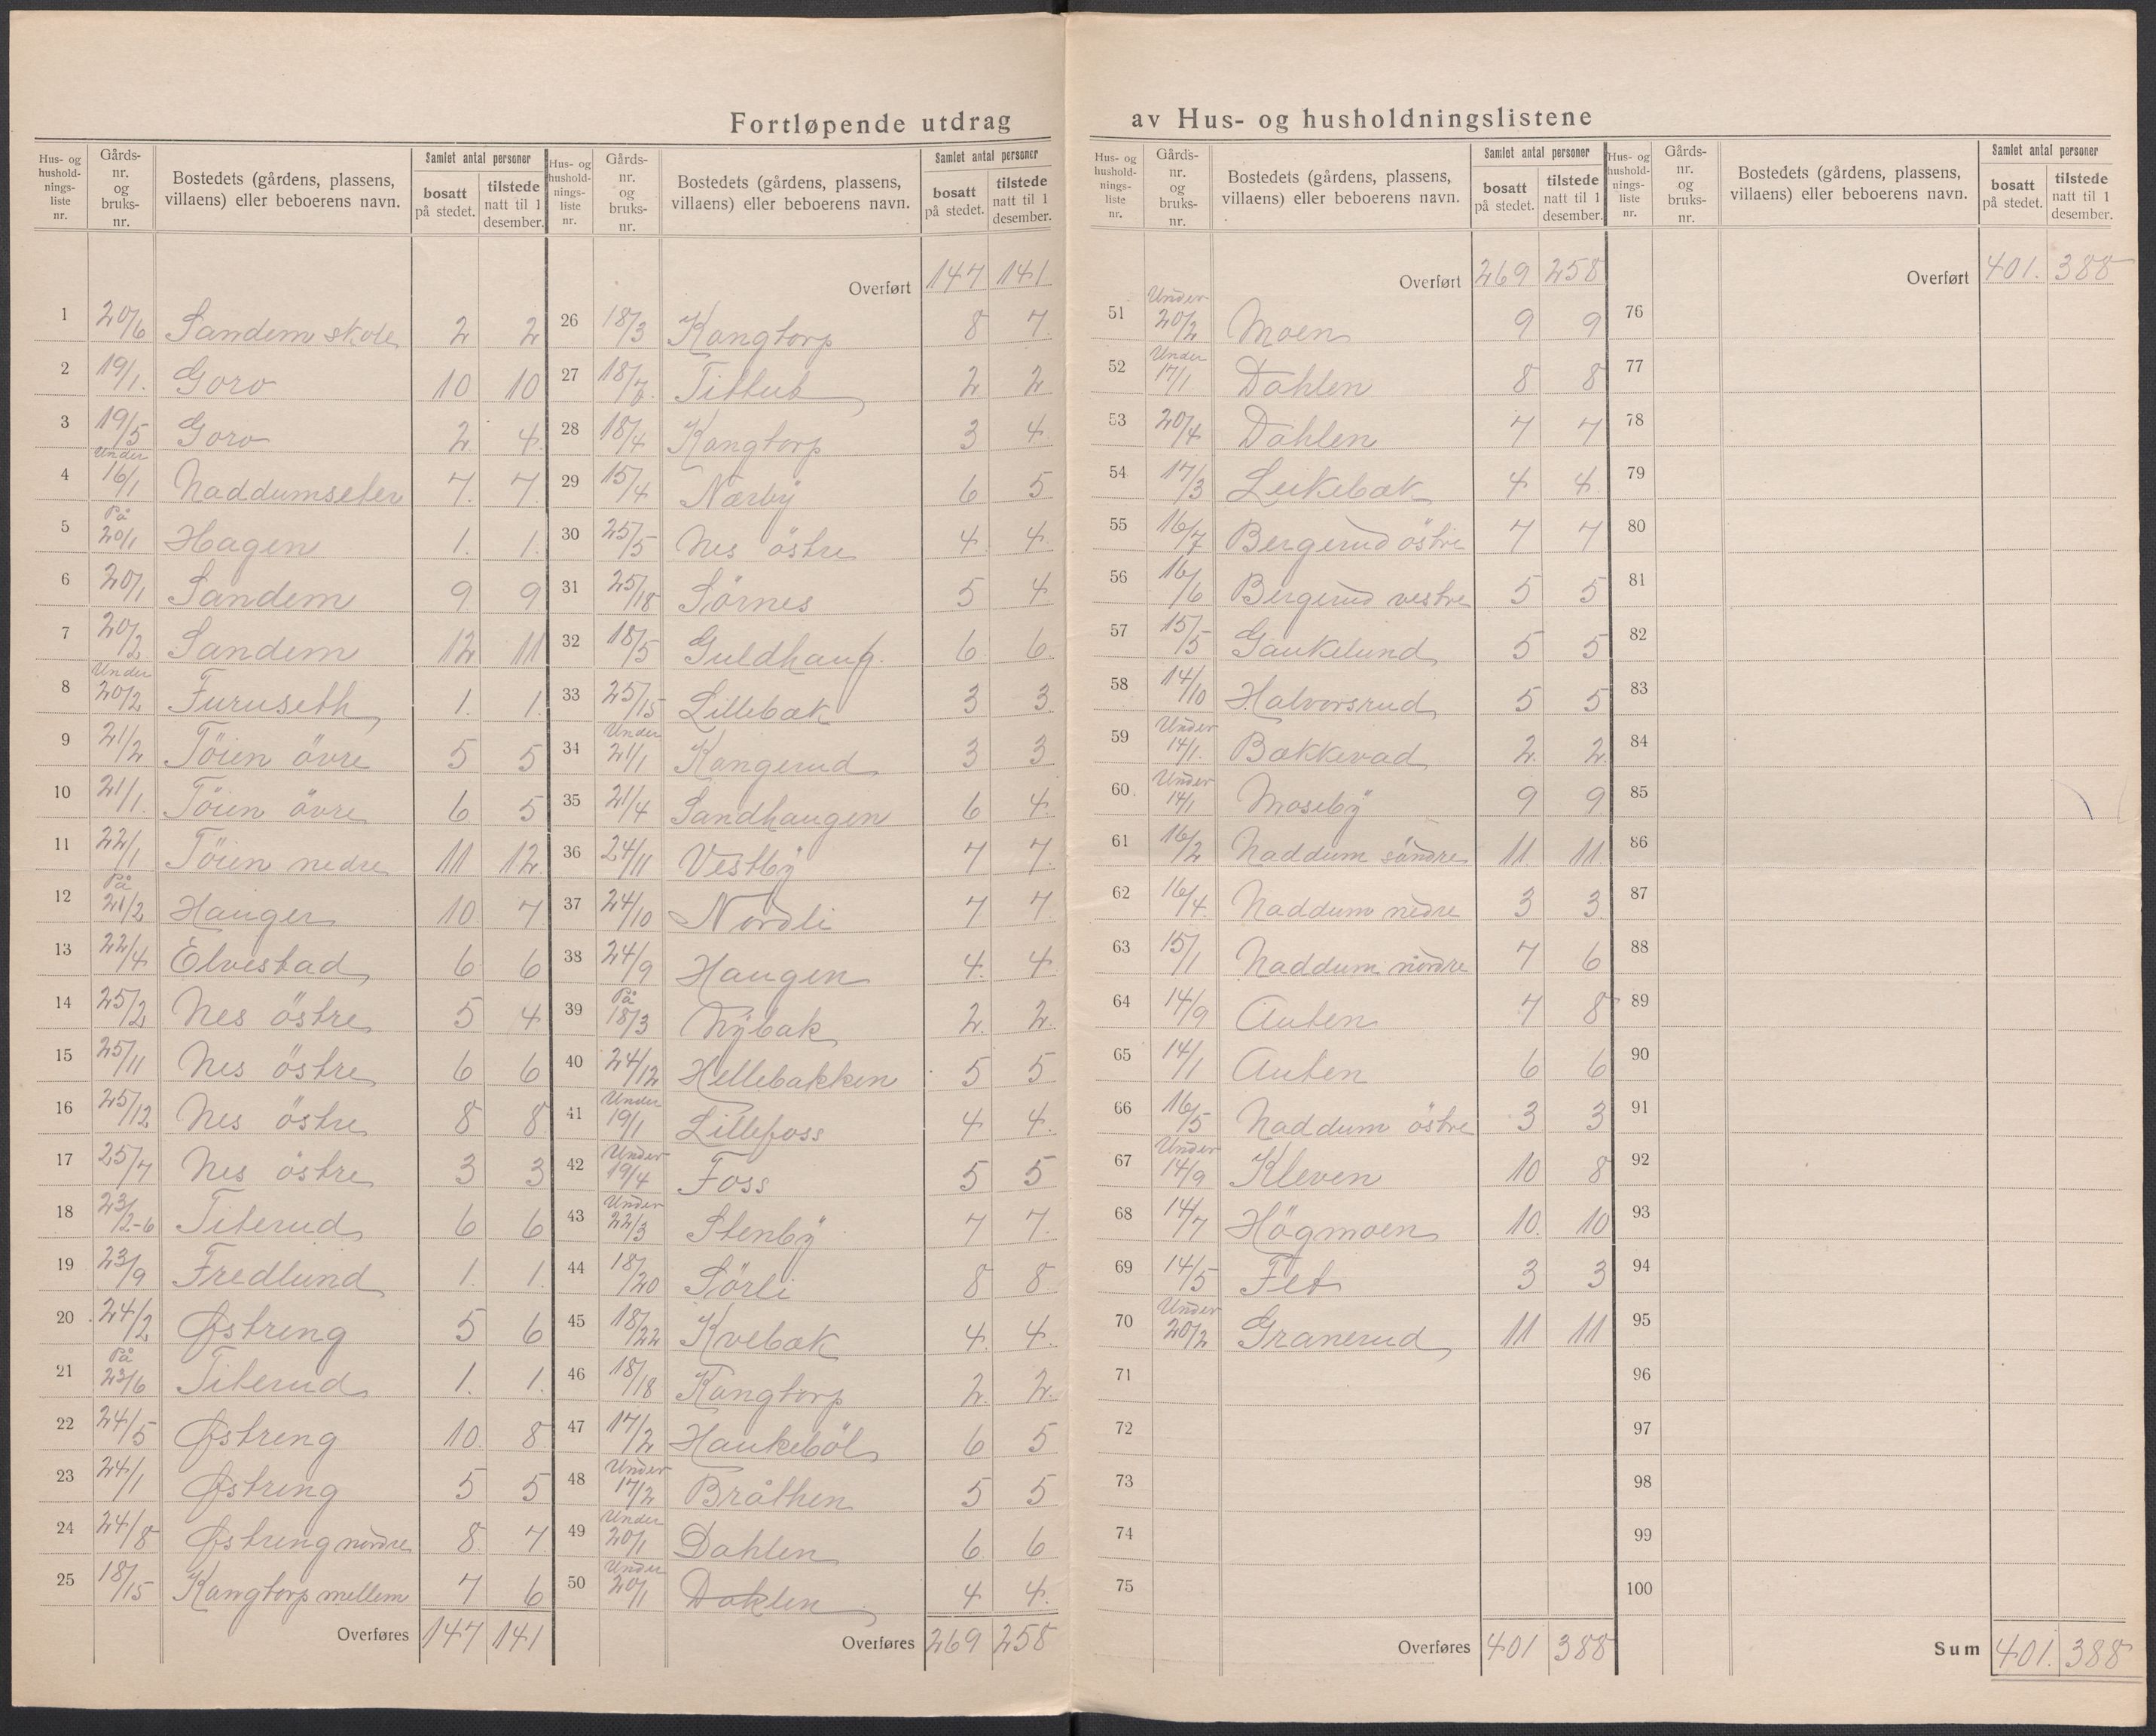 Fortløpende utdrag av Hus- og husholdningslistene
Hus- og husholdnings-liste nr. | Gårds-nr. og bruks-nr. | Bostedets (gårdens, plassens, villaens) eller beboerens navn. | Samlet antal personer | bosatt på stedet. | tilstede natt til 1 desember.
1 20/6 Sandem skole 2 2
2 19/1. Goro 10 10
3 19/5 Goro 2. 4.
4 Under 16/1 Naddumseter 7. 7.
5 På 20/1 Hagen 1. 1.
6 20/1 Sandem 9 9
7 20/2 Sandem 12 11
8 Under 20/2 Furuseth 1. 1.
9 21/2 Töien övre 5 5
10 21/1. Töien övre 6 5
11 22/1 Töien nedre 11 12.
12 På 21/2 Hauger 10 7
13 22/4 Elvestad 6 6
14 25/2 Nes östre 5 4
15 25/11 Nes östre 6 6
16 25/12 Nes östre 8 8
17 25/7 Nes östre 3 3
18 23/2-6 Titerud 6 6
19 23/9 Fredlund 1. 1.
20 24/2 Østreng 5 6
21 På 23/6 Titerud 1. 1.
22 24/5 Østreng 10. 8
23 24/1 Østreng 5 5
24 24/8 Østreng nordre 8. 7
25 18/15 Kangtorp mellem 7 6
Overføres 147 141
Hus- og husholdnings-liste nr. | Gårds-nr. og bruks-nr. | Bostedets (gårdens, plassens, villaens) eller beboerens navn. | Samlet antal personer | bosatt på stedet. | tilstede natt til 1 desember.
Overført 147 141
26 18/3 Kangtorp 8 7.
27 18/7. 2 2
28 18/4 Kangtorp 3 4
29 15/4 Nærbÿ 6 5
30 25/5 Nes östre 4 4
31 25/18 Sörnes 5 4
32 18/5 Guldhaug. 6 6
33 25/15 Lillebæk 3 3
34 Under 21/1 Kangerud 3 3
35 21/4 Sandhaugen 6 4.
36 24/11 Vestbÿ 7 7.
37 24/10 Nordli 7 7
38 24/9 Haugen 4. 4
39 På 18/3 Nÿbak 2. 2.
40 24/12 Hellebakken 5 5
41 Under 19/1 Lillefoss 4 4.
42 Under 19/4 Foss 5 5
43 Under 22/3 Stenbÿ 7 7.
44 18/20 Sörli 8 8
45 18/22 Kvebæk 4. 4.
46 18/18 Kangtorp 2. 2.
47 17/2 Haukeböl 6 5
48 Under 17/2 Bråthen 5 5
49 Under 20/1 Dahlen 6. 6
50 Under 20/1 Dahlen 4 4.
Overføres 269 258
Hus- og husholdnings-liste nr. | Gårds-nr. og bruks-nr. | Bostedets (gårdens, plassens, villaens) eller beboerens navn. | Samlet antal personer | bosatt på stedet. | tilstede natt til 1 desember.
Overført 269 258
51 Under 20/2 Moen 9 9
52 Under 17/1 Dahlen 8 8
53 20/4 Dahlen 7 7
54 17/3 Leikebæk 4 4.
55 16/7 Bergerud östre 7 7
56 16/6 Bergerud vestre 5 5
57 15/5 Gaukelund 5 5
58 14/10 Halvorsrud 5 5
59 Under 14/1. Bækkevad 2. 2.
60 Under 14/1 Mosebÿ 9 9
61 16/2 Naddum söndre 11. 11.
62 16/4. Naddum nedre 3 3
63 15/1 Naddum nordre 7 6
64 14/9 Auten 7 8
65 14/1 Auten 6 6
66 16/5 Naddum östre 3 3
67 Under 14/9 Kleven 10 8
68 14/7 Högmoen 10. 10
69 14/5 Fet 3 3
70 Under 20/2 Granerud 11 11
71
72
73
74
75
Overføres 401 388
Hus- og husholdnings-liste nr. | Gårds-nr. og bruks-nr. | Bostedets (gårdens, plassens, villaens) eller beboerens navn. | Samlet antal personer | bosatt på stedet. | tilstede natt til 1 desember.
Overført 401. 388
76
77
78
79
80
81
82
83
84
85
86
87
88
89
90
91
92
93
94
95
96
97
98
99
100
Sum 401. 388